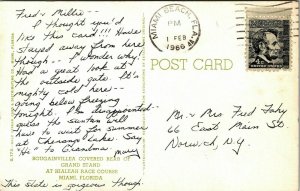 Fred & Millie —
I thought you'd
like this card!!! Have
stayed away from here
though — I wonder why!
Had a great look at
the outside gate. It's
mighty cold here —
going below freezing
tonight. I'm disappointed
the suntan will
have to wait for summer
at Chenango Lake. Say
"Hi" to Grandma
Mary
BOUGAINVILLEA COVERED REAR OF
GRAND STAND
AT HIALEAH RACE COURSE
MIAMI, FLORIDA
This State is gorgeous though
POST CARD
MIAMI BEACH, FLA.
PM
1 FEB
1966
4c
Mr. & Mrs. Fred Fahy
66 East Main St.
Norwich, N.Y.